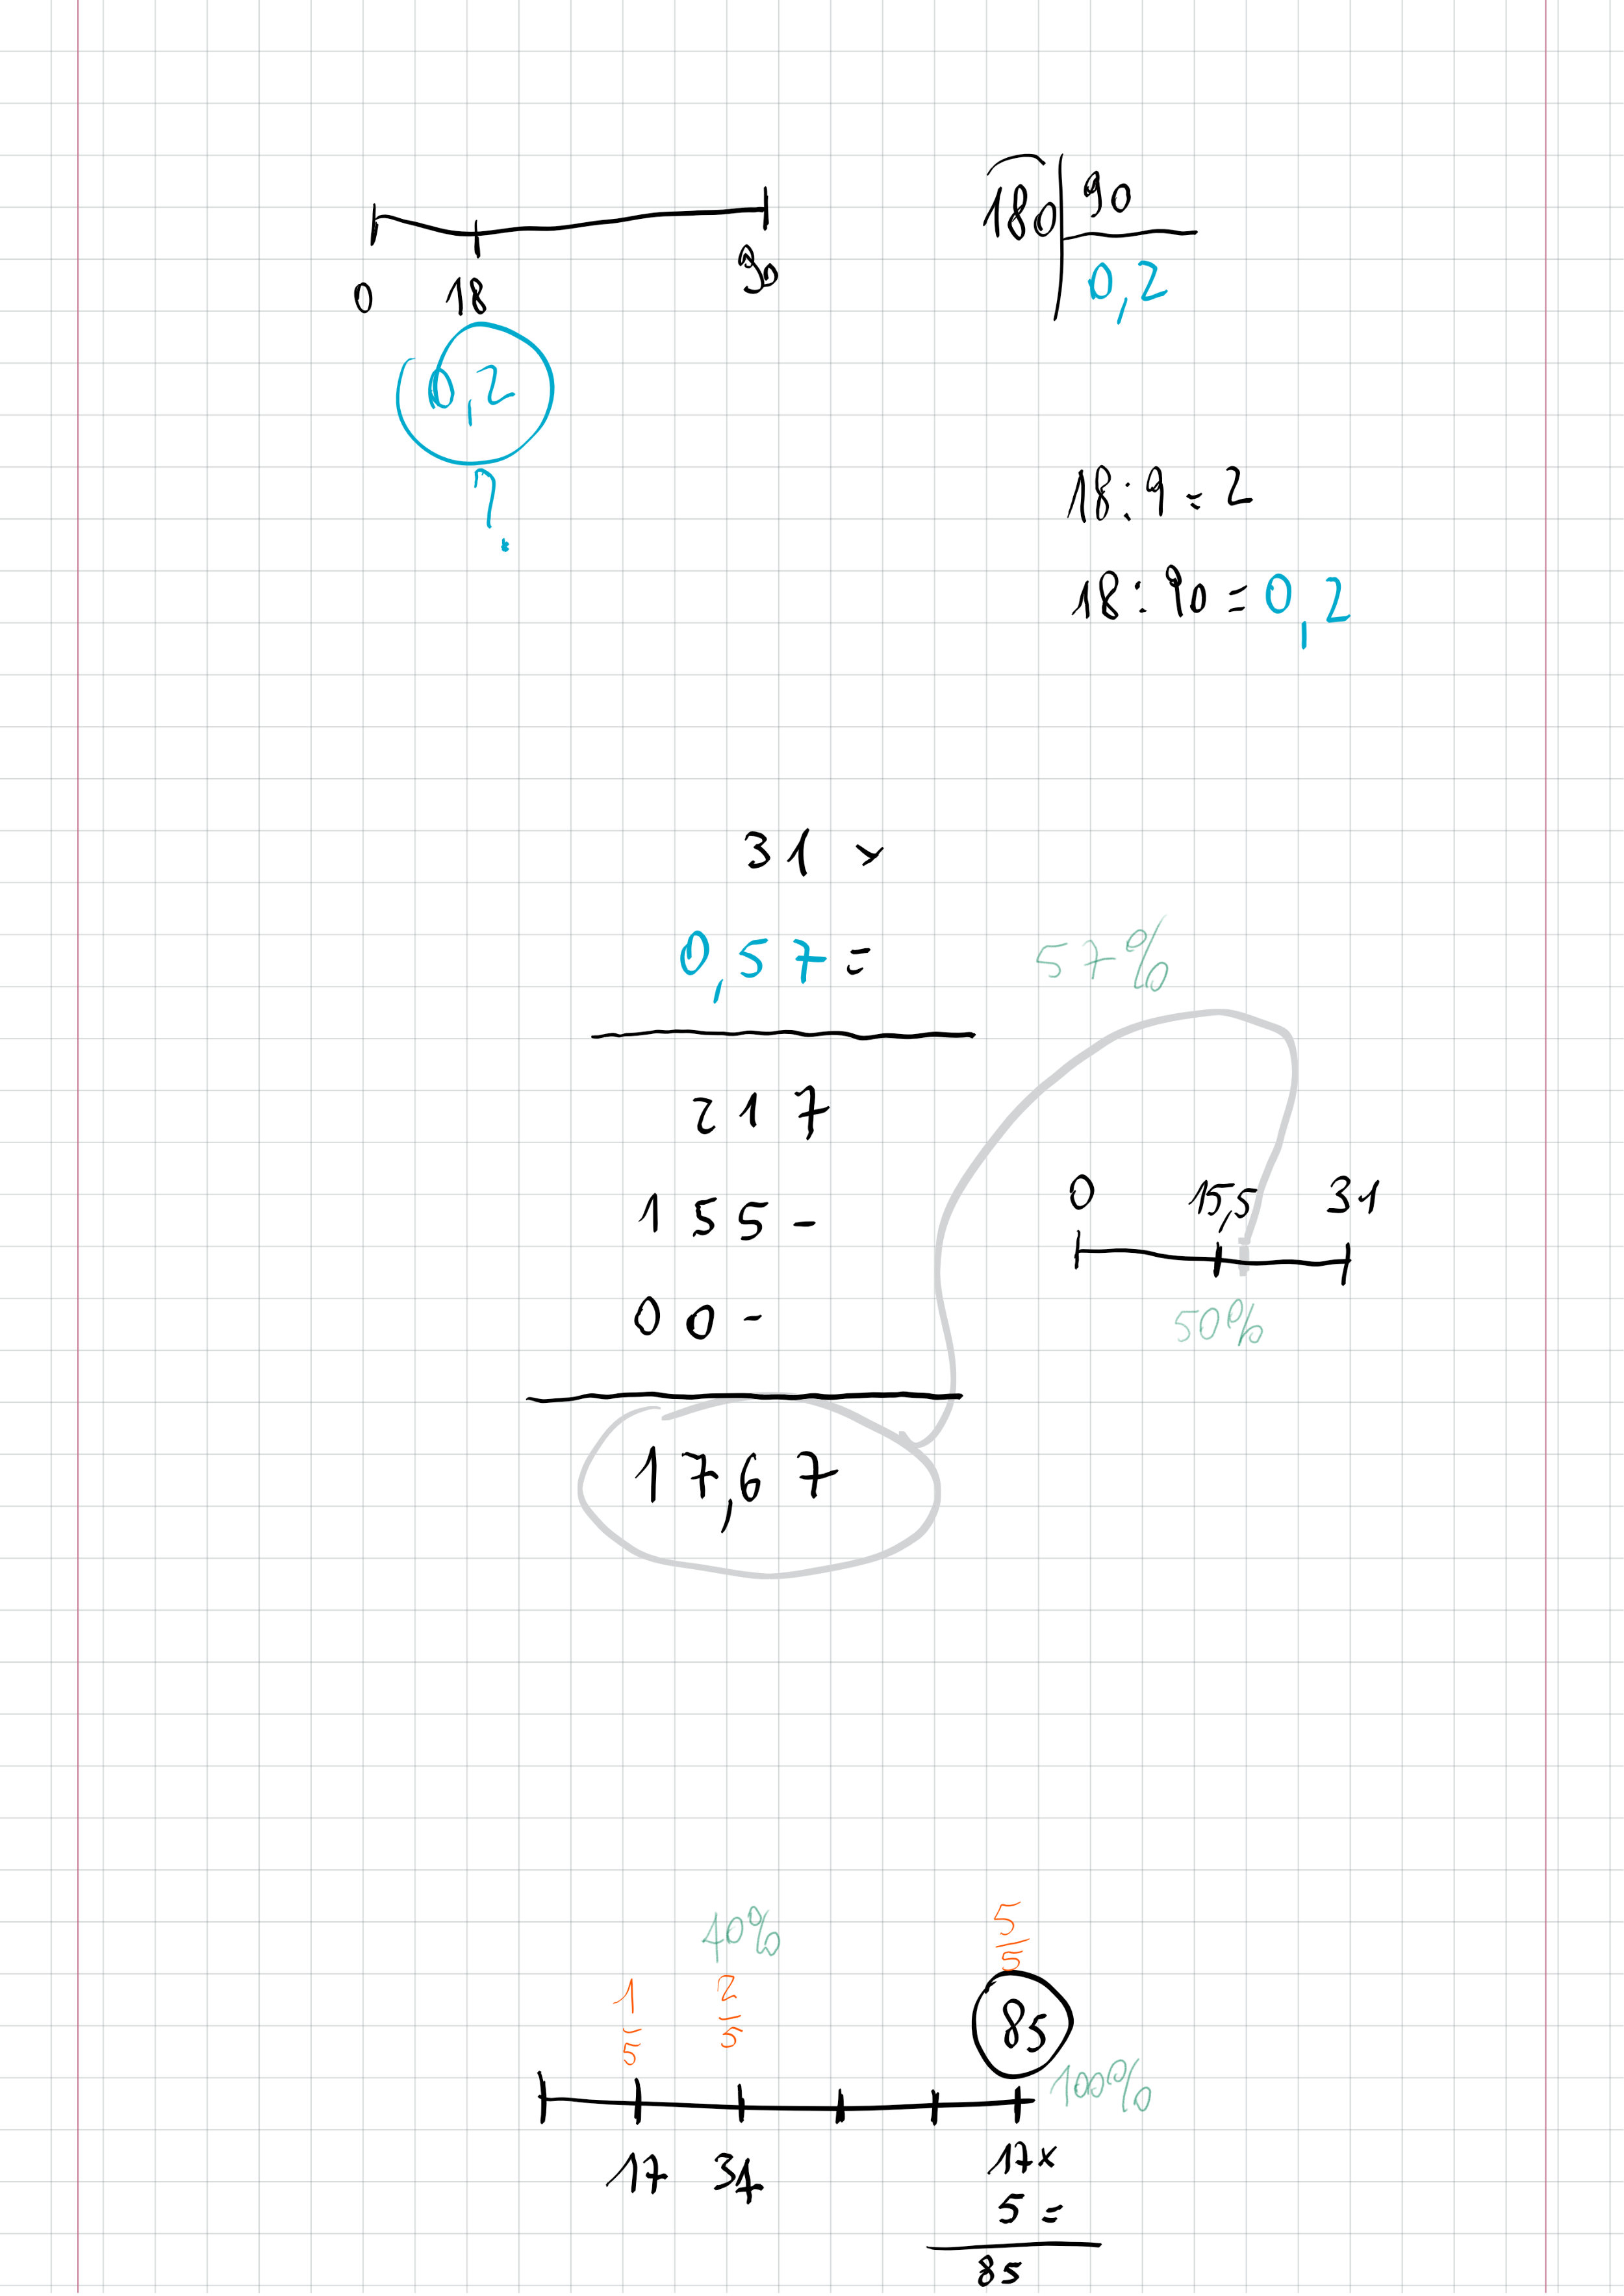 0 18 90
0,2
?
180 90
0,2
18:9=2
18:90=0,2
31 ×
0,57=
57%
217
155-
00-
17,67
0 15,5 31
50%
40%
1/5 2/5 5/5
85
100%
17 34
17×
5=
85